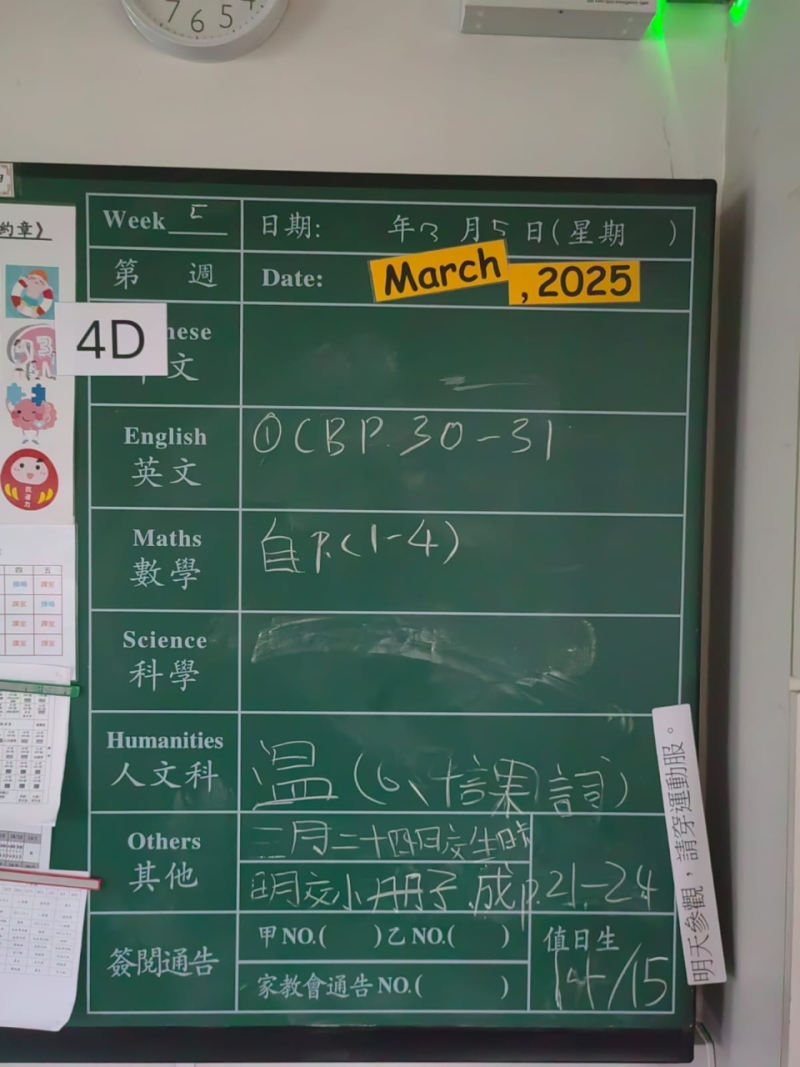 7 6 5 4
約章》
Week 5 日期: 年3月5日(星期 )
第 週 Date: March , 2025
4D
nese
文
English ①CBP.30-31
英文
Maths 自P.(1-4)
數學
Science
科學
Humanities 溫(6、十課詞)
人文科
Others 三月二十四日交生
其他 明交小冊子,成p.21-24
簽閱通告 甲NO.( )乙NO.( ) 值日生
家教會通告NO.( ) 14/15
明天參觀，請穿運動服。
四 五